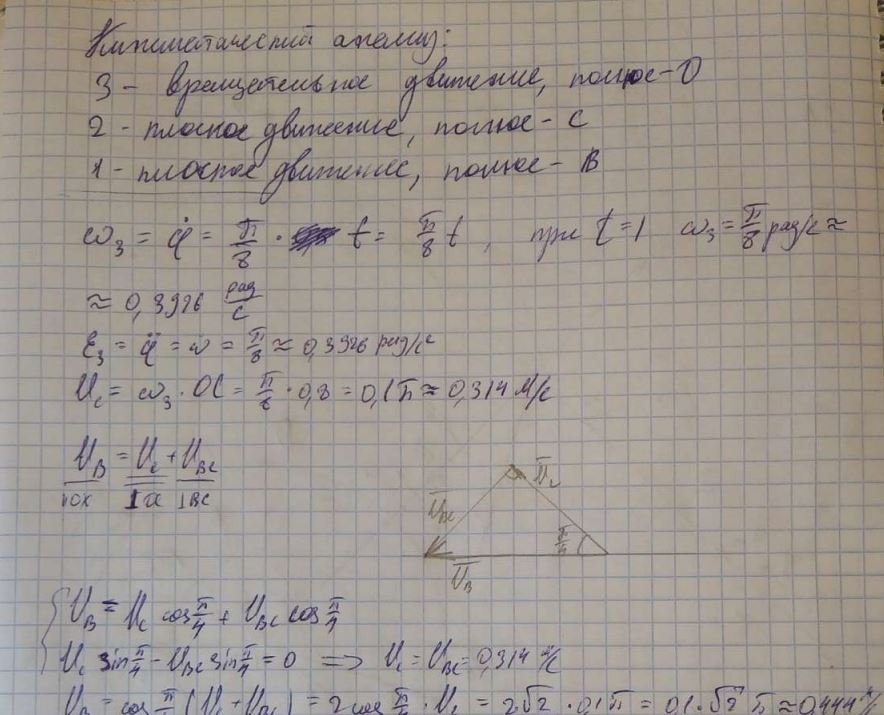 Кинематический анализ:
3 - вращательное движение, полюс - O
2 - плоское движение, полюс - C
1 - плоское движение, полюс - B
ω₃ = φ̇ = π/8 · t = π/8 t, при t = 1 ω₃ = π/8 рад/с ≈
≈ 0,3926 рад/с
ε₃ = φ̈ = ω̇ = π/8 ≈ 0,3926 рад/с²
U_c = ω₃ · OC = π/8 · 0,8 = 0,1π ≈ 0,314 м/с
U_B = U_c + U_BC
||OX ⊥OC ⊥BC
Ū_c
Ū_BC
π/4
Ū_B
U_B = U_c cos π/4 + U_BC cos π/4
U_c sin π/4 - U_BC sin π/4 = 0 => U_c = U_BC = 0,314 м/с
U_B = cos π/4 (U_c + U_BC) = 2 cos π/4 · U_c = 2√2 · 0,1π = 0,1 · √2 π ≈ 0,444 м/с